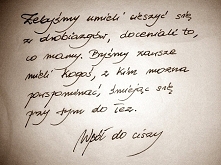 Żebyśmy umieli cieszyć się
z drobiazgów, doceniali to,
co mamy. Byśmy zawsze
mieli kogoś, z kim można
powspominać, śmiejąc się
przy tym do łez.
Wpół do ciszy